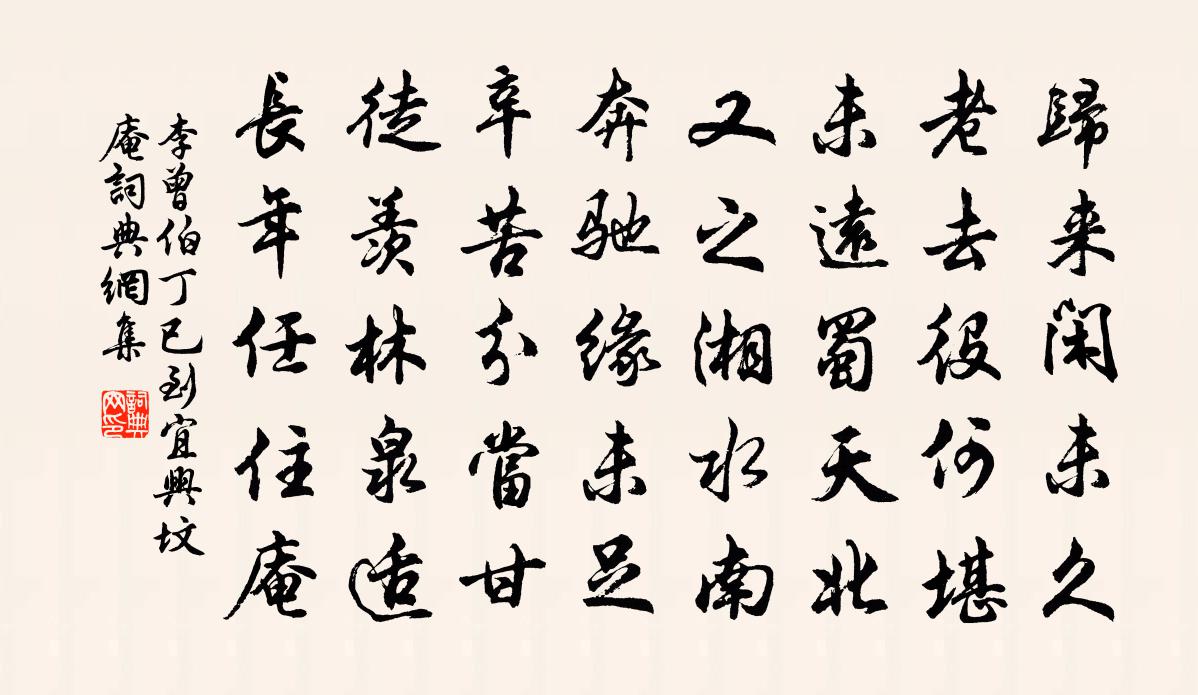 歸来閑未久
老去役何堪
未遠蜀天北
又之湘水南
奔馳緣未足
辛苦分當甘
徒羨林泉适
長年任住庵
李曾伯丁巳到宜興坟
庵詞典網集
詞典网印